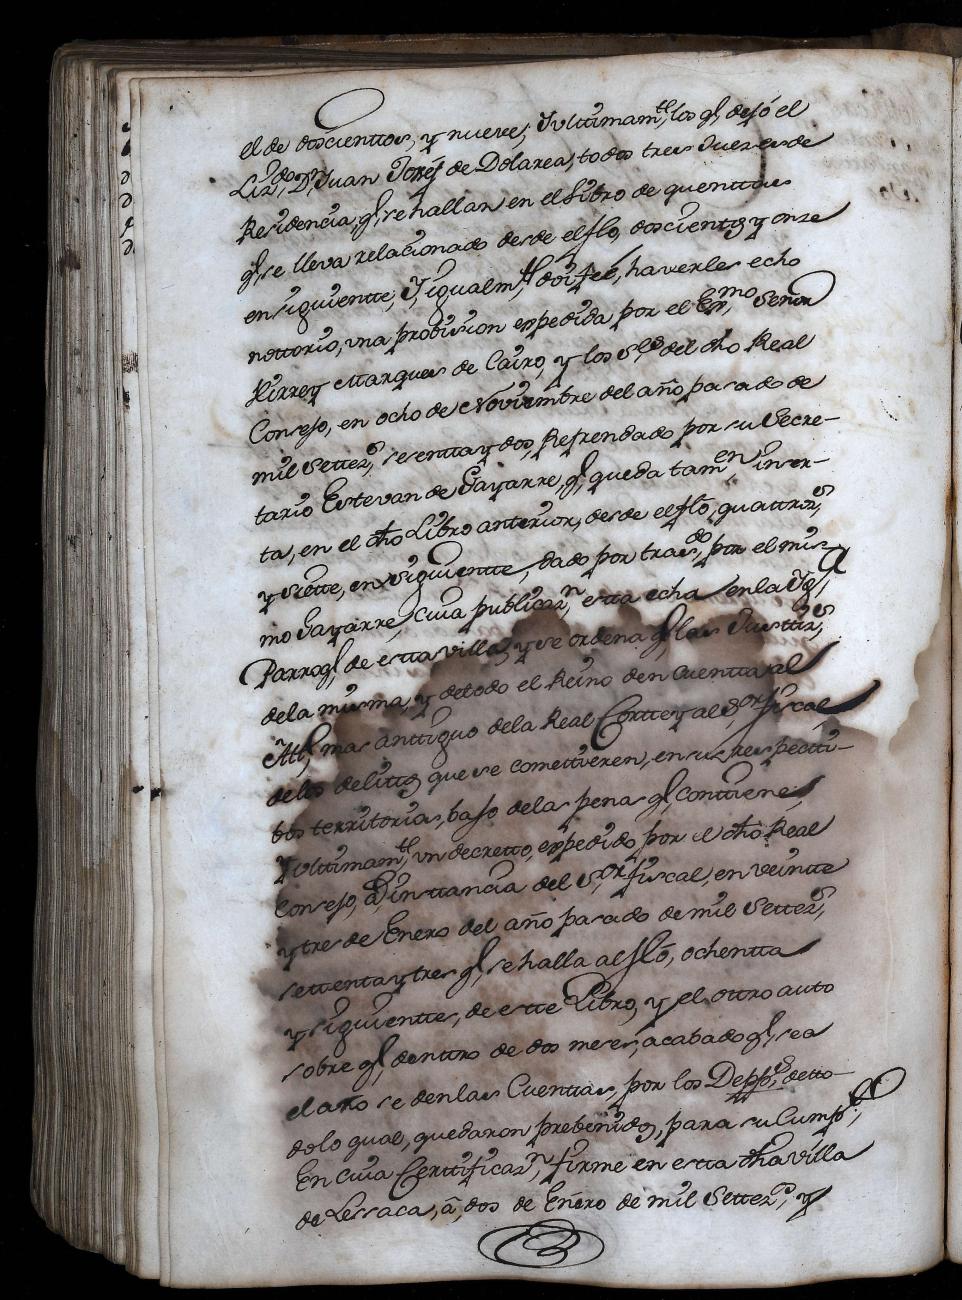 el de doscienttos, y nueve, Yulttimamte, los q, dejó el
Lizdo, Dn Juan de Dolarea, todos tres Juezes de
Residencia, q, se hallan en el Libro de quenttas
q, se lleva relacionado desde el flo, doscientos y onze
en siguientte, Y, igualmte doi fee, haverles echo
nottorio, una probision expedida por el Exmo, Señor
Virrey Marques de Cairo, y los Ses del dho Real
Consejo, en ocho de Noviembre del año pasado de
mil Settezs, sesentta y dos, Refrendado por su Secre-
tario Estevan de Gayarre, q, queda tamen inser-
ta, en el dho Libro antterior, desde el flo, quattrozs,
y siette, en siguientte, dado por trasdo, por el mis-
mo Gayarre, cuia publicazn, estta echa en la Yga,
Parroql, de estta villa, y se ordena q, las Justtizs,
de la misma, y de todo el Reino den Cuentta al
Attl, mas anttiguo de la Real Cortte y al Sor fiscal,
de los delittos que se comettieren, en sus respectti-
bos territorios, bajo de las penas q, conttiene,
Y ulttimamte, un decretto, expedido por el dho Real
Consejo, â, insttancia del Sor fiscal, en veintte
y tres de Enero del año pasado de mil Settezs,
settenta y tres q, se halla al flo, ochentta
y siguienttes, de estte Libro, y el ottro auto
sobre q, denttro de dos meses, acabado q, sea
el año se den las Cuenttas, por los Depposs, de tto-
do lo qual, quedaron prebenidos, para su Cumpto,
En cuia Certtificazn, firme en estta dha villa
de Lesaca, â, dos de Enero de mil Settezs, y